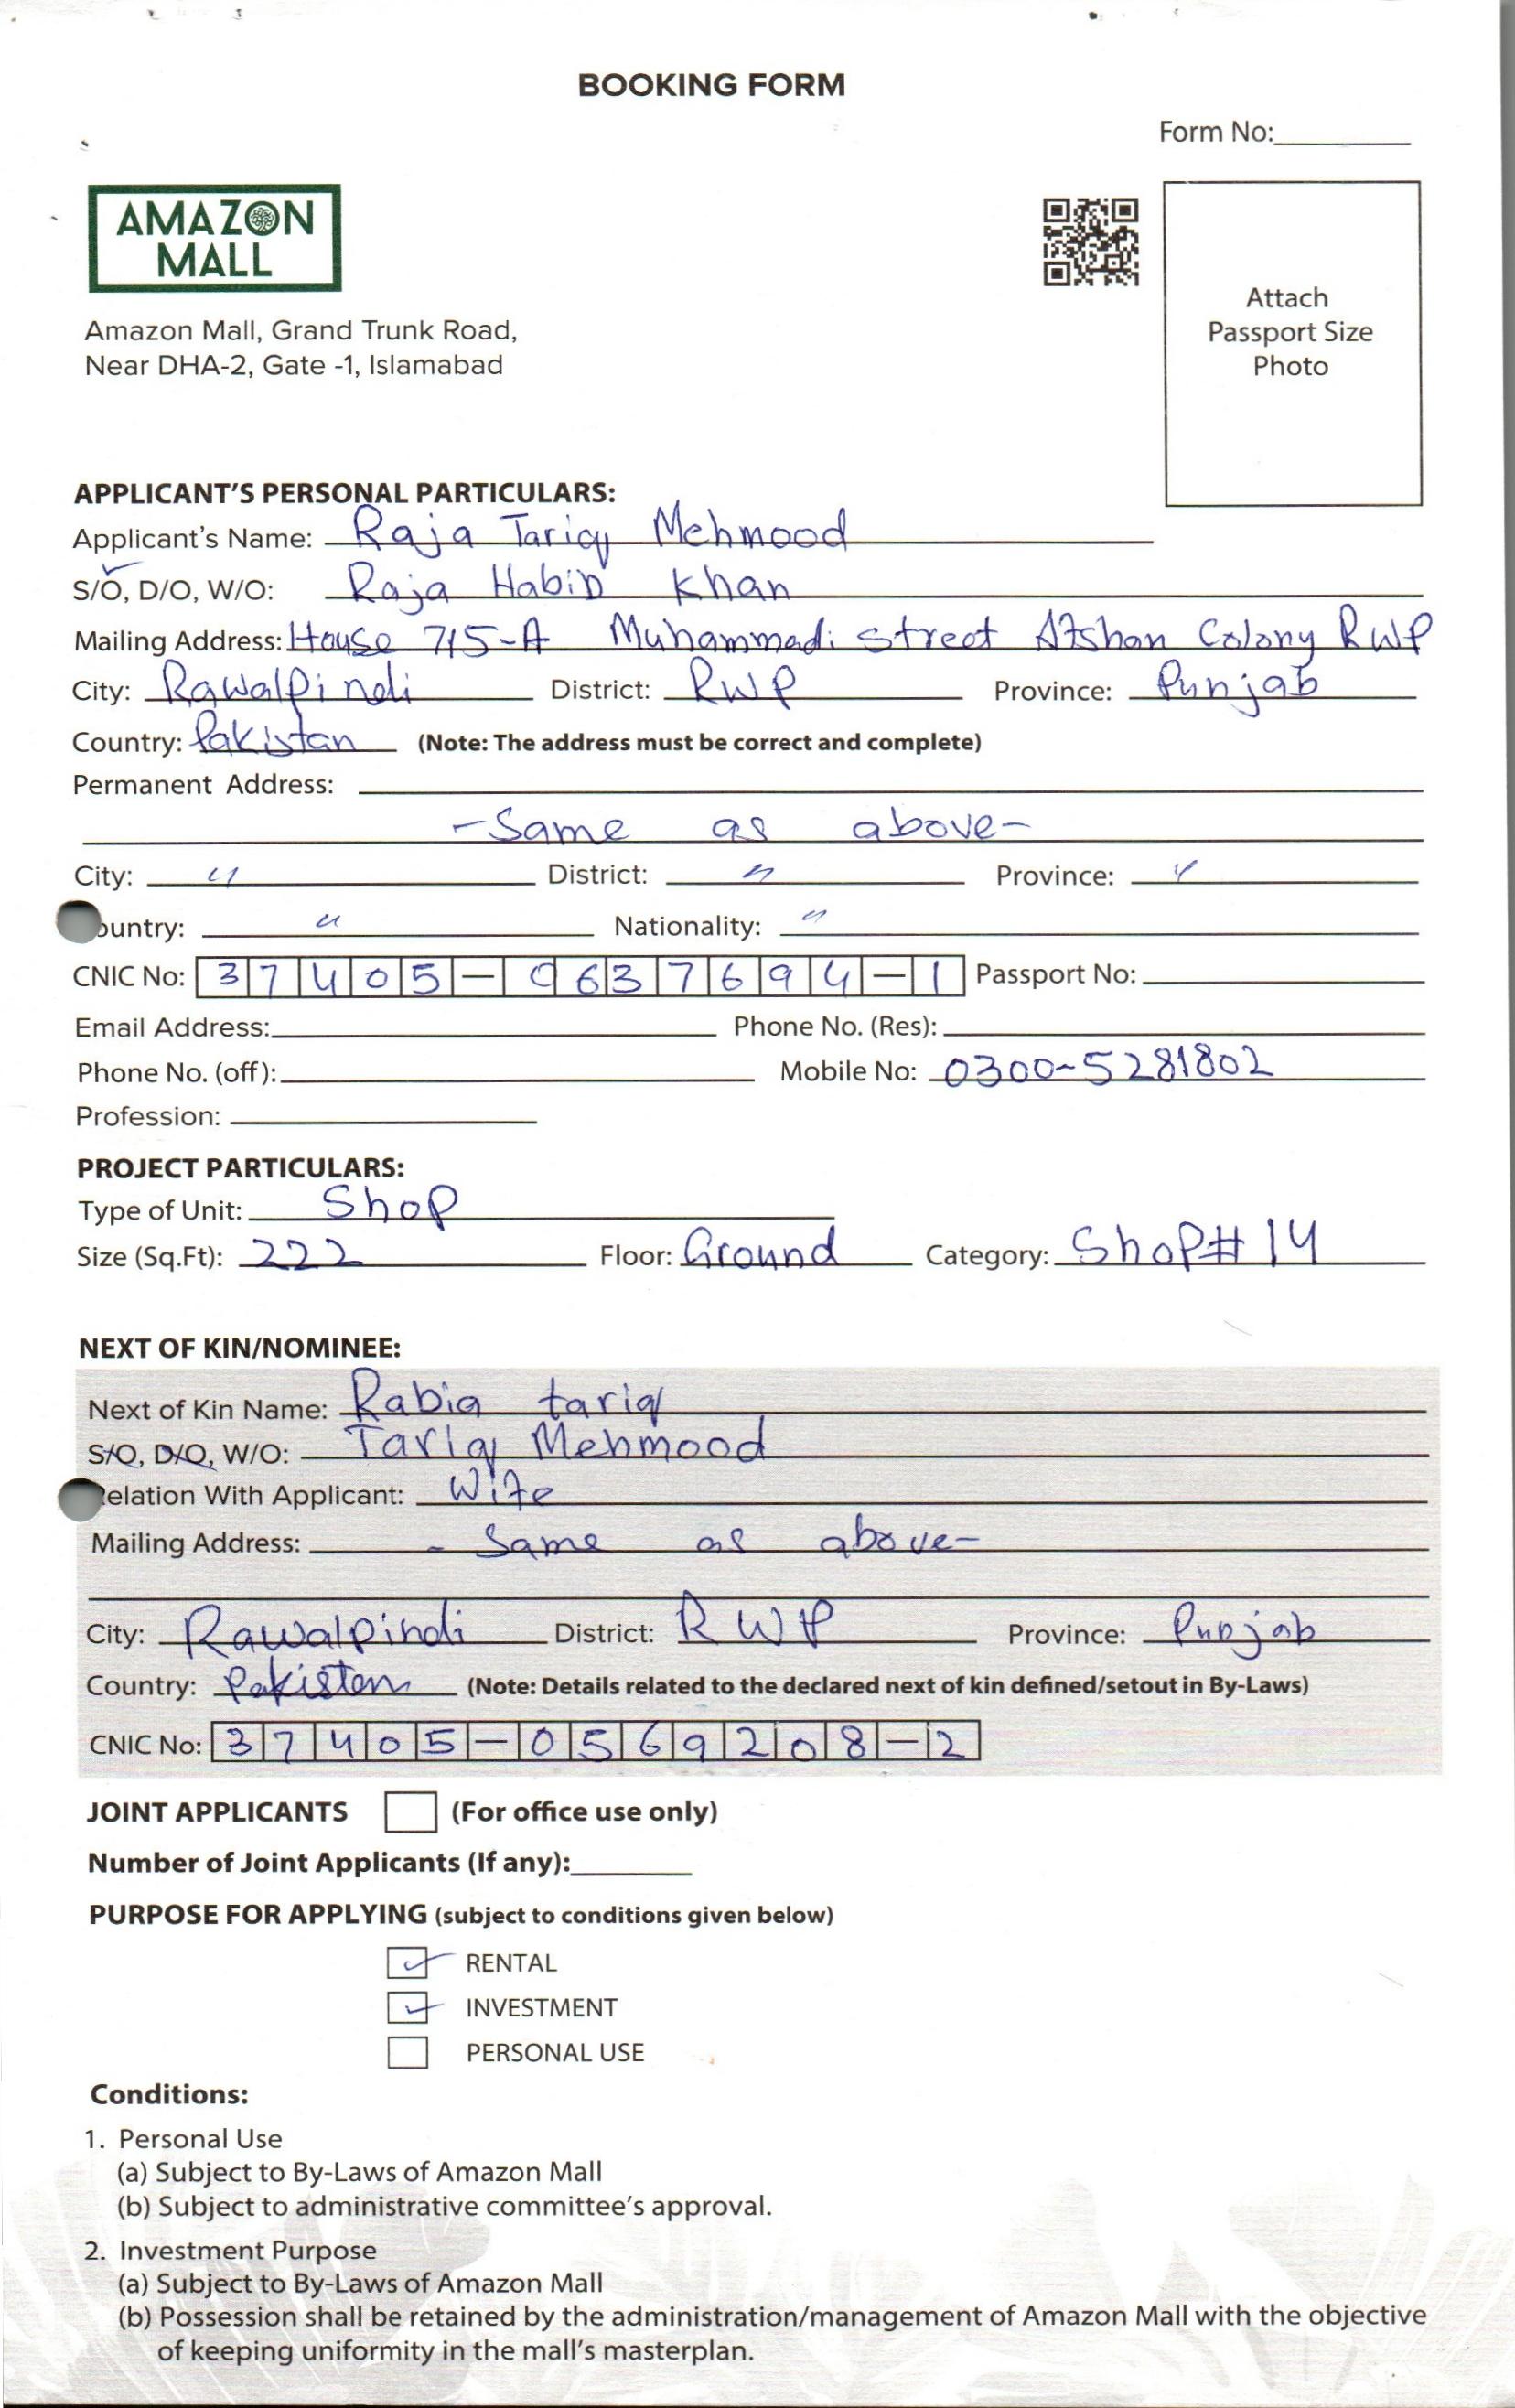 BOOKING FORM
Form No:
AMAZON
MALL
Attach
Passport Size
Photo
Amazon Mall, Grand Trunk Road,
Near DHA-2, Gate -1, Islamabad
APPLICANT'S PERSONAL PARTICULARS:
Applicant's Name: Raja Tariq Mehmood
S/O, D/O, W/O: Raja Habib Khan
Mailing Address: House 715-A Muhammadi Street Afshan Colony RWP
City: Rawalpindi District: RWP Province: Punjab
Country: Pakistan (Note: The address must be correct and complete)
Permanent Address:
- Same as above -
City: " District: " Province: "
ountry: " Nationality: "
CNIC No: 37405-0637694-1 Passport No:
Email Address: Phone No. (Res):
Phone No. (off): Mobile No: 0300-5281802
Profession:
PROJECT PARTICULARS:
Type of Unit: Shop
Size (Sq.Ft): 222 Floor: Ground Category: Shop# 14
NEXT OF KIN/NOMINEE:
Next of Kin Name: Rabia tariq
S/O, D/O, W/O: Tariq Mehmood
elation With Applicant: Wife
Mailing Address: - Same as above -
City: Rawalpindi District: RWP Province: Punjab
Country: Pakistan (Note: Details related to the declared next of kin defined/setout in By-Laws)
CNIC No: 37405-0569208-2
JOINT APPLICANTS (For office use only)
Number of Joint Applicants (If any):
PURPOSE FOR APPLYING (subject to conditions given below)
RENTAL
INVESTMENT
PERSONAL USE
Conditions:
1. Personal Use
(a) Subject to By-Laws of Amazon Mall
(b) Subject to administrative committee's approval.
2. Investment Purpose
(a) Subject to By-Laws of Amazon Mall
(b) Possession shall be retained by the administration/management of Amazon Mall with the objective
of keeping uniformity in the mall's masterplan.